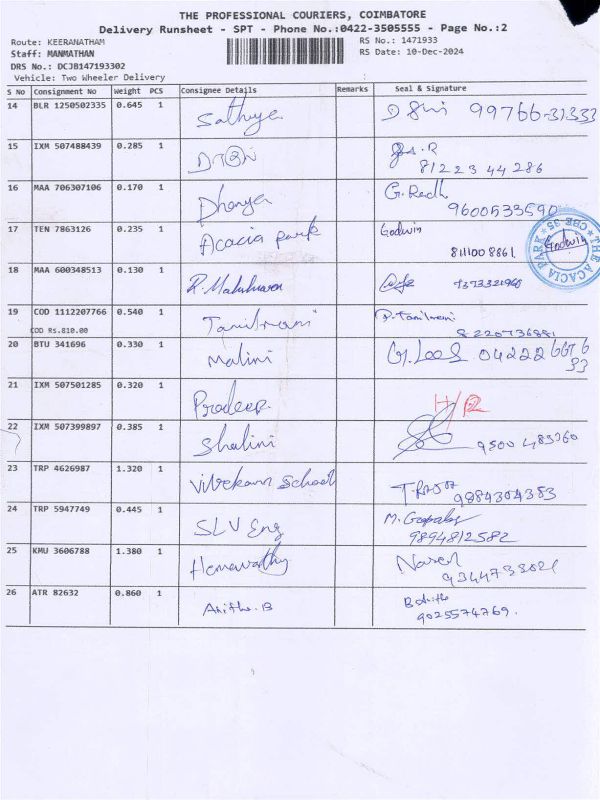 THE PROFESSIONAL COURIERS, COIMBATORE
Delivery Runsheet - SPT - Phone No.:0422-3505555 - Page No.:2
Route: KEERANATHAM RS No.: 1471933
Staff: MANMATHAN RS Date: 10-Dec-2024
DRS No.: DCJB147193302
Vehicle: Two Wheeler Delivery
S No Consignment No Weight PCS Consignee Details Remarks Seal & Signature
14 BLR 1250502335 0.645 1 Sathya 99766-31333
15 IXM 507488439 0.285 1
81223 44 286
16 MAA 706307106 0.170 1 Dhanya G. Redh
9600533590
17 TEN 7863126 0.235 1 Acacia park Godwin
8111008861
THE ACACIA PARK CBE-35
Godwin
18 MAA 600348513 0.130 1
7373321960
19 COD 1112207766 0.540 1 Tamilmani P. Tamilmani
COD Rs.810.00 8220736881
20 BTU 341696 0.330 1 Malini 04222
21 IXM 507501285 0.320 1 Pradeep
22 IXM 507399897 0.385 1 Shalini 9500 483260
23 TRP 4626987 1.320 1 Vivekam School T. RAJA
9884304353
24 TRP 5947749 0.445 1 SLV Eng M. Gopalan
9894812582
25 KMU 3606788 1.380 1 Hemavathy Naren
26 ATR 82632 0.860 1 Anitha.B
9025574769.